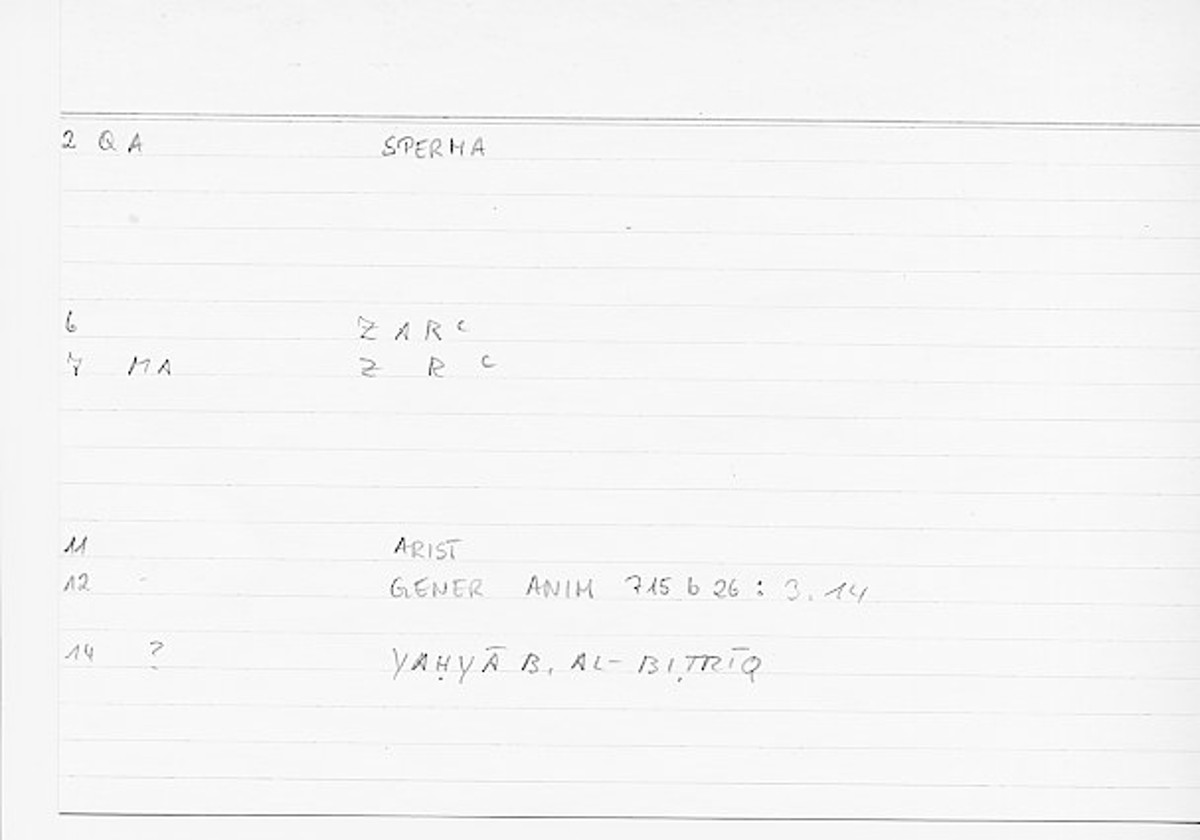 2 Q A SPERMA
6 Z A R ʿ
7 MA Z R ʿ
11 ARIST
12 GENER ANIM 715 b 26 : 3.14
14 ? YAḤYĀ B. AL-BIṬRĪQ